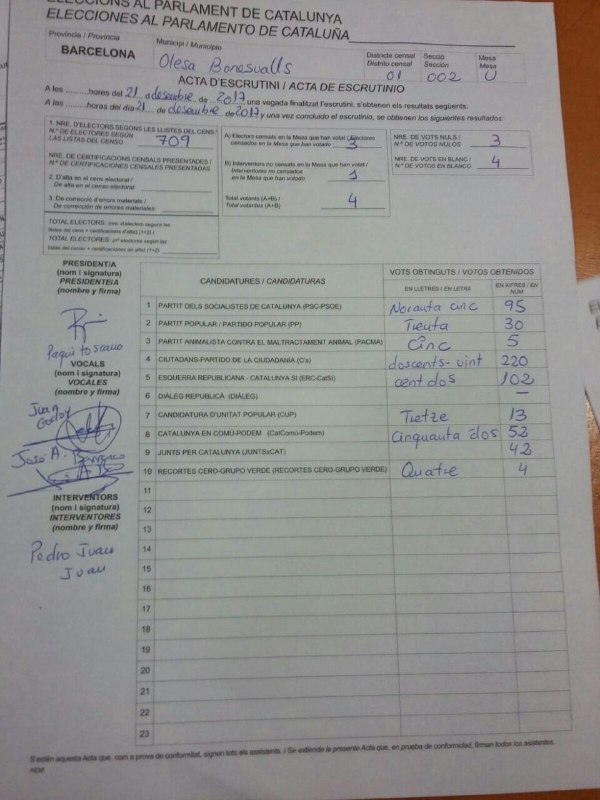 ELECCIONS AL PARLAMENT DE CATALUNYA
ELECCIONES AL PARLAMENTO DE CATALUÑA
Província / Provincia
BARCELONA
Municipi / Municipio
Olesa Bonesvalls
Districte censal
Distrito censal
01
Secció
Sección
002
Mesa
Mesa
U
ACTA D'ESCRUTINI / ACTA DE ESCRUTINIO
A les ..........hores del 21 de desembre de 2017 una vegada finalitzat l'escrutini, s'obtenen els resultats següents:
A las ..........horas del día 21 de desembre de 2017 y una vez concluido el escrutinio, se obtienen los siguientes resultados:
1. NRE. D'ELECTORS SEGONS LES LLISTES DEL CENS /
N.º DE ELECTORES SEGÚN
LAS LISTAS DEL CENSO
709
NRE. DE CERTIFICACIONS CENSALS PRESENTADES /
N.º DE CERTIFICACIONES CENSALES PRESENTADAS
2. D'alta en el cens electoral /
De alta en el censo electoral:
3. De correcció d'errors materials /
De corrección de errores materiales:
TOTAL ELECTORS: nre. d'electors segons les
llistes del cens + certificacions d'alta) (1+2) /
TOTAL ELECTORES: (n.º electores según las
listas del censo + certificaciones de alta) (1+2)
A) Electors censats en la Mesa que han votat / Electores
censados en la Mesa que han votado
3
B) Interventors no censats en la Mesa que han votat /
Interventores no censados
en la Mesa que han votado
1
Total votants (A+B) /
Total votantes (A+B)
4
NRE. DE VOTS NULS /
N.º DE VOTOS NULOS
3
NRE. DE VOTS EN BLANC /
N.º DE VOTOS EN BLANCO
4
PRESIDENT/A
(nom i signatura)
PRESIDENTE/A
(nombre y firma)
Paqui toscano
VOCALS
(nom i signatura)
VOCALES
(nombre y firma)
Juan
Godoy
José A.
INTERVENTORS
(nom i signatura)
INTERVENTORES
(nombre y firma)
Pedro Juan
Juan
CANDIDATURES / CANDIDATURAS
VOTS OBTINGUTS / VOTOS OBTENIDOS
EN LLETRES / EN LETRA
EN XIFRES / EN NÚM
1 PARTIT DELS SOCIALISTES DE CATALUNYA (PSC-PSOE) Norauta cinc 95
2 PARTIT POPULAR / PARTIDO POPULAR (PP) Trenta 30
3 PARTIT ANIMALISTA CONTRA EL MALTRACTAMENT ANIMAL (PACMA) Cinc 5
4 CIUTADANS-PARTIDO DE LA CIUDADANÍA (C's) doscents-vint 220
5 ESQUERRA REPUBLICANA - CATALUNYA SI (ERC-CatSí) cent dos 102
6 DIÀLEG REPUBLICÀ (DIÀLEG) —
7 CANDIDATURA D'UNITAT POPULAR (CUP) Tretze 13
8 CATALUNYA EN COMÚ-PODEM (CatComú-Podem) Cinquanta dos 52
9 JUNTS PER CATALUNYA (JUNTSxCAT) 42
10 RECORTES CERO-GRUPO VERDE (RECORTES CERO-GRUPO VERDE) Quatre 4
11
12
13
14
15
16
17
18
19
20
21
22
23
S'estén aquesta Acta que, com a prova de conformitat, signen tots els assistents. / Se extiende la presente Acta que, en prueba de conformidad, firman todos los asistentes.